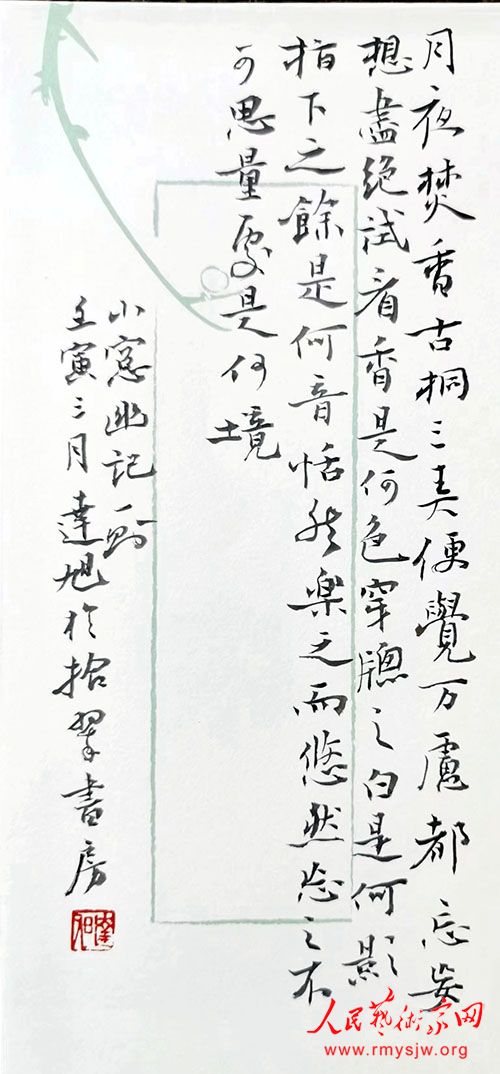 月夜焚香古桐三弄便覺万慮都忘妄
想盡絕試看香是何色穿牕之白是何影
指下之餘是何音恬然樂之而悠然忘之不
可思量處是何境
小窓幽記一則
壬寅三月達旭於拾翠書房
人民藝術家网
www.rmysjw.org